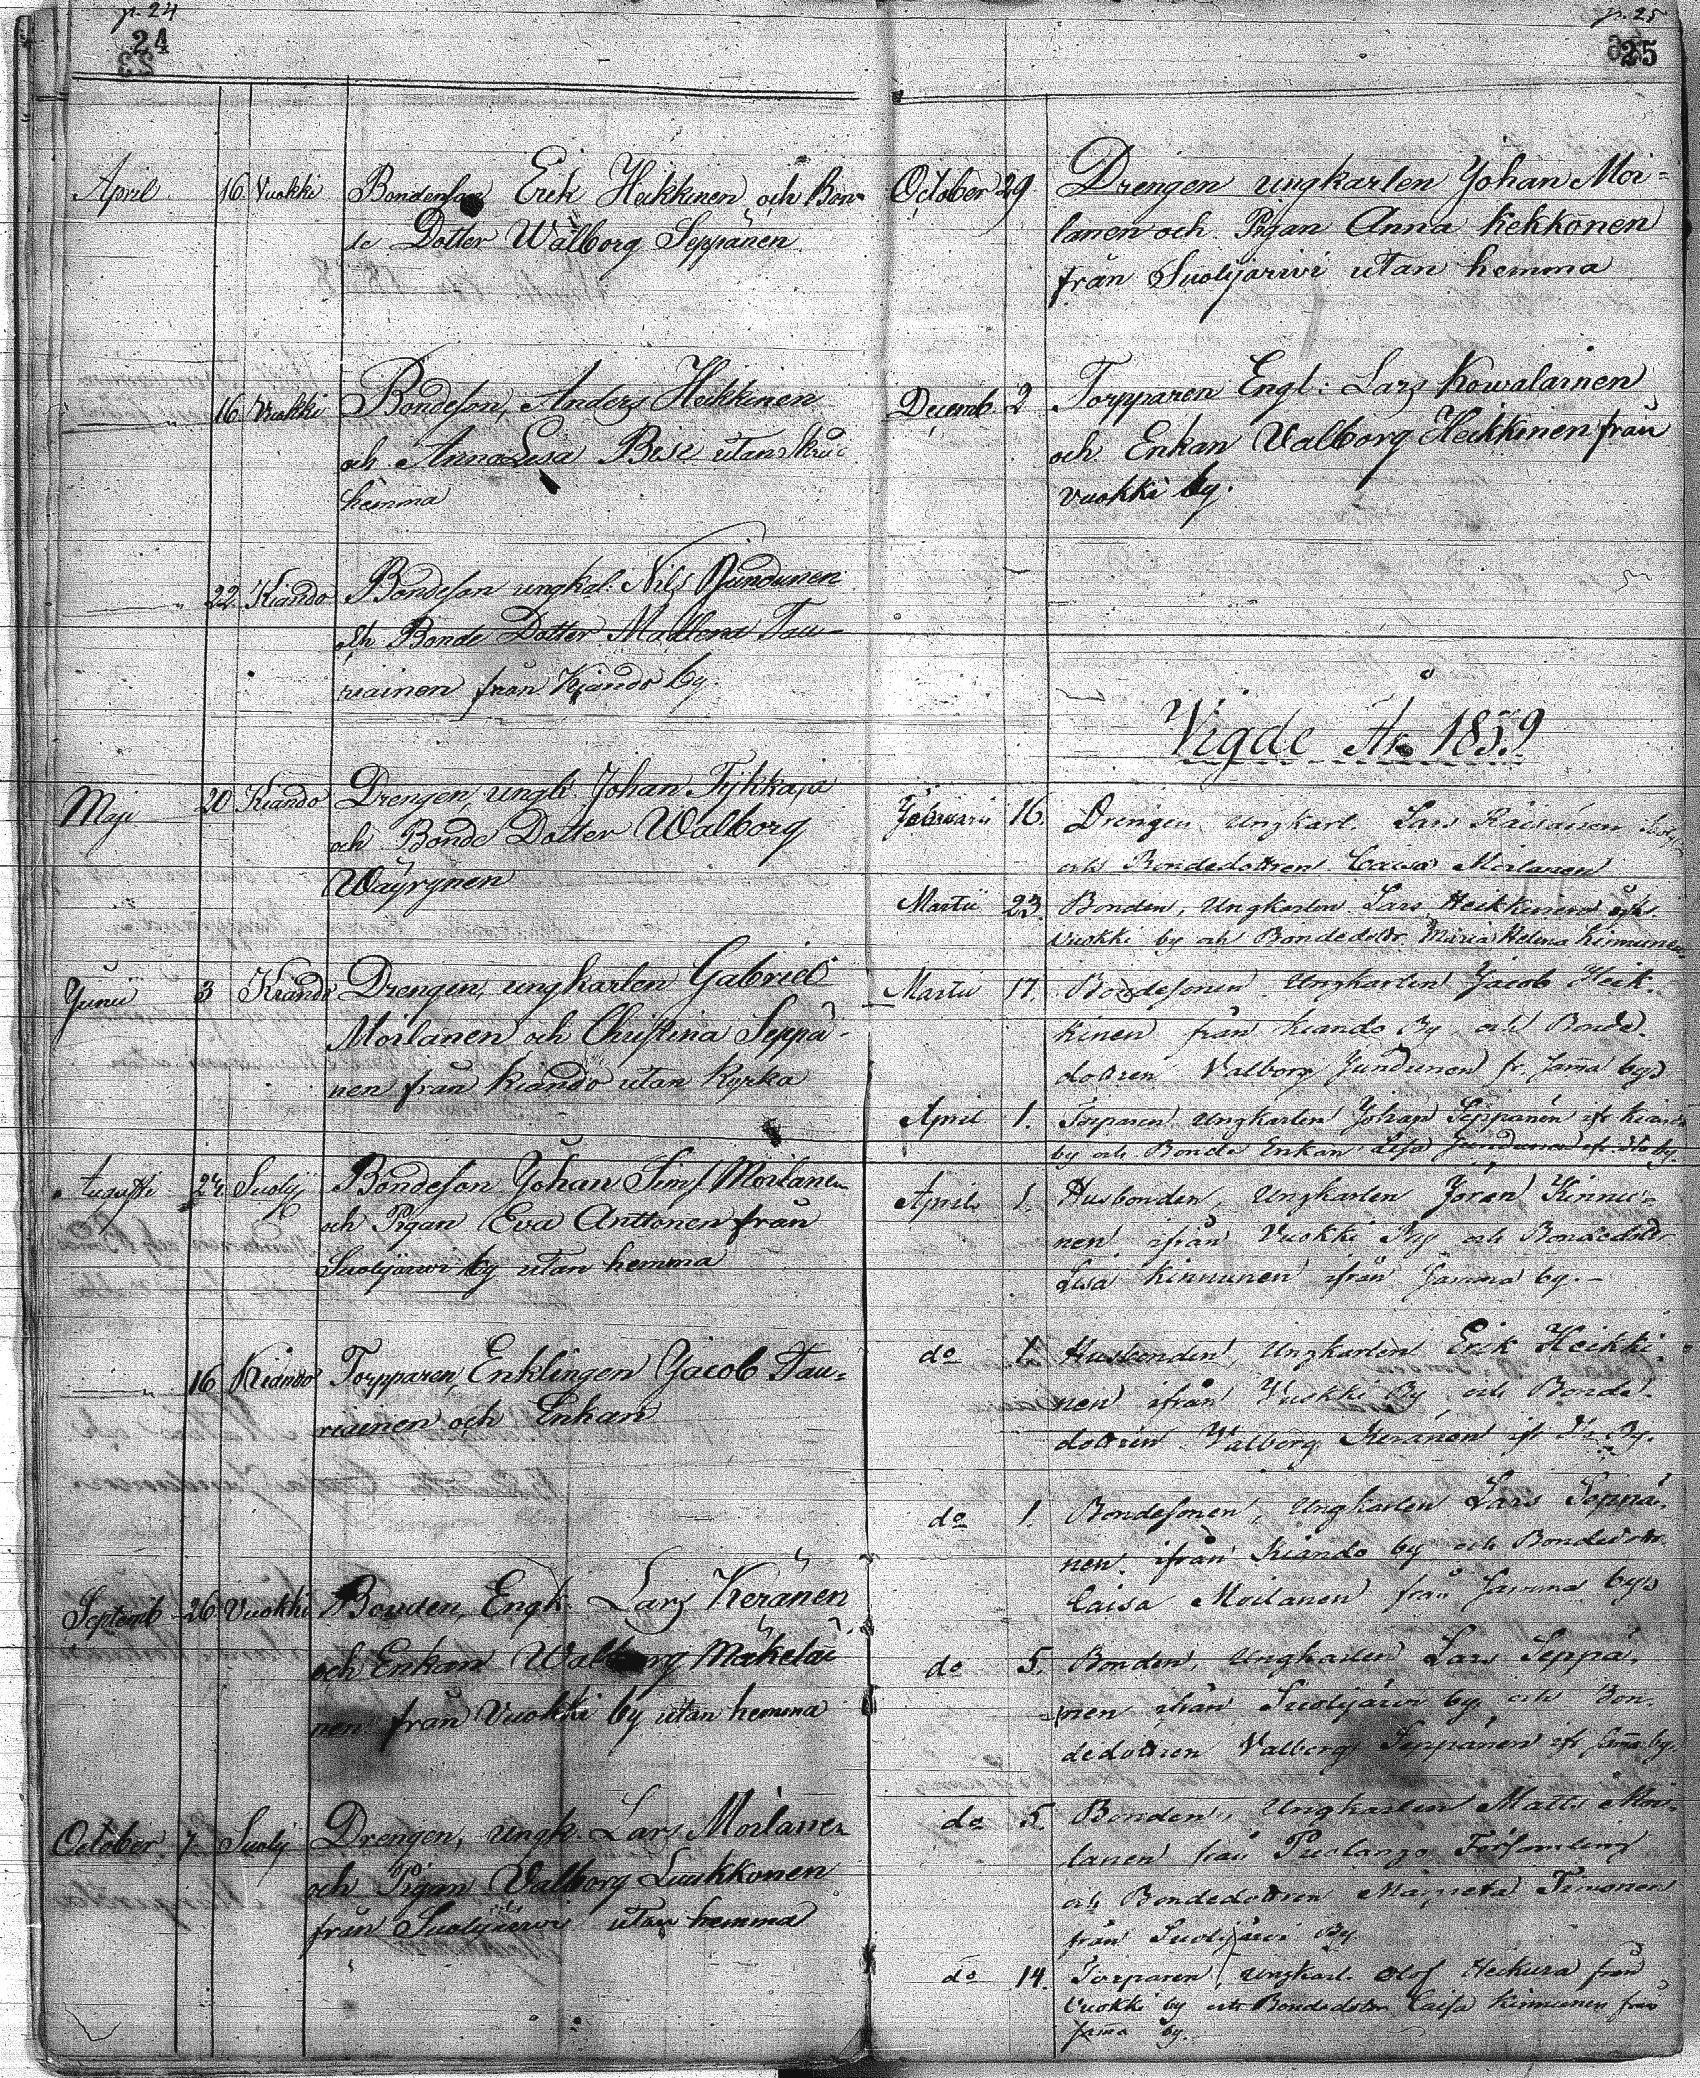 p. 24
24
April 16. Vuokki Bondeson Erik Heikkinen och Bon-
de Dotter Walborg Seppänen
16 Vuokki Bondeson, Anders Heikkinen
och Anna Lisa utan
hemma
22. Kiando Bondeson ungkal. Nils Jundunen
och Bonde Dotter Madlena Tau-
riainen från Kiando by.
Maji 20 Kiando Drengen, ungk. Johan Tykkaja
och Bonde Dotter Walborg
Wäyrynen
Junii 3 Kiando Drengen, ungkarlen Gabriel
Moilanen och Christina Seppä-
nen från Kiando utan Kyrka
Augusti 24. Suolij Bondeson Johan Moilanen
och Pigan Eva Anttonen från
Suolijärwi by utan hemma
16 Kiando Torpparen, Enklingen Jacob Tau-
riainen och Enkan
Septemb 26 Vuokki Bonden, Engk. Lars Keränen
och Enkan Walborg Mäkeläi-
nen från Vuokki by utan hemma
October 7 Suolij Drengen, ungk. Lars Moilanen
och Pigan Valborg Luukkonen
från Suolijärwi utan hemma
p. 25
25
October 29 Drengen ungkarlen Johan Moi-
lanen och Pigan Anna Kekkonen
från Suolijärwi utan hemma
Decemb. 2 Torpparen Engl: Lars Kowalainen
och Enkan Valborg Heikkinen från
Vuokki by.
Vigde År 1859
Februarii 16. Drengen Ungkarl. Lars Räisänen
och Bondedottren Caisa Moilanen
Martii 23. Bonden, Ungkarlen Lars Heikkinen
Vuokki by och Bondedottr. Maria Helena Kinnunen
Martii 17. Bondesonen Ungkarlen Jacob Heik-
kinen från Kiando By och Bonde-
dottren Valborg Jundunen fr. sama by
April 1. Torparen Ungkarlen Johan Seppänen ifr Kiando
by och Bonde Enkan Lisa Jundunen
April 1. Husbonden, Ungkarlen Jöran Kinnu-
nen ifrån Vuokki By och Bondedottr
Lisa Kinnunen ifrån samma by.
do 1. Husbonden, Ungkarlen Erik Heikki-
nen ifrån Vuokki By och Bonde-
dottren Valborg Keränen
do 1. Bondesonen, Ungkarlen Lars Seppä-
nen ifrån Kiando by och Bondedottr
Caisa Moilanen från samma by
do 5. Bonden, Ungkarlen Lars Seppä-
nen ifrån Suolijärvi by och Bon-
dedottren Valborg Seppänen ifr sama by.
do 5 Bonden, Ungkarlen Matts Moi-
lanen från Puolango Församling
och Bondedottren Magreta Timonen
från Suolijärvi By
do 14. Torparen, Ungkarl. Olof Heikura från
Vuokki by och Bondedottr Caisa Kinnunen från
sama by.